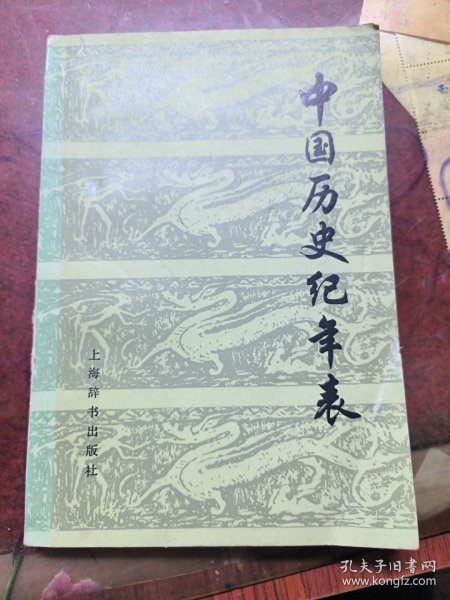 中国历史纪年表
上海辞书出版社
孔夫子旧书网
www.kongfz.com